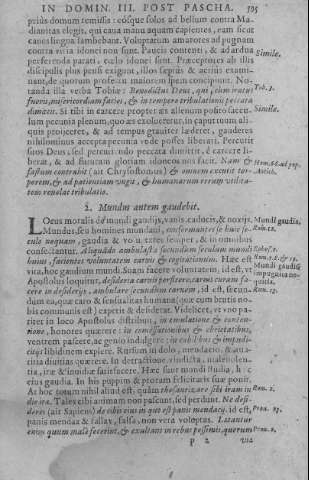 IN DOMIN. III. POST PASCHA. 595
prius domum remissa: eosque solos ad bellum contra Ma-
dianitas elegit, qui caua manu aquam
canes lingua lambebant. Voluptatum amatores ad pugnam
contra vitia idonei non sunt. Pauci contenti, & ad ardua
perferenda parati, eo idonei sunt. Præceptores ab illis
discipulis plus penſi exigunt, illos ſæpius & acrius exami-
nant, de quorum profectu maiorem ſpem concipiunt. No-
tanda illa verba Tobiæ: Benedictus Deus, qui, cùm iratus
fueris, miſericordiam facies, & in tempore tribulationis peccata
dimittis. Si tibi in carcere propter æs alienum poſito
lum pecuniâ plenum, quo æs exolueretur, in caput tuum ali-
quis proijceret, & ad tempus grauiter læderet, gauderes
nihilominus accepta pecunia vnde poſſes liberari. Percutit
ſuos Deus, ſed percutiendo peccata dimittit, è carcere li-
berat, & ad futuram gloriam idoneos nos facit. Nam &
faſtum contrahit (ait Chryſoſtomus) & omnem excutit tor-
porem, & ad patientiam vngit, & humanarum rerum vilita-
tem reuelat tribulatio.
Similæ.
Tob. 3.
Similæ.
2. Mundus autem gaudebit.
Locus moralis de mundi gaudijs, vanis, caducis, & noxijs.
Mundus, ſeu homines mundani, conformantes ſe huic ſe-
culo nequam, gaudia & voluptates ſuper, & in omnibus
conſectantur. Aliquando ambulaſtis ſecundùm ſeculum mundi
huius, facientes voluntatem carnis & cogitationum. Hæc eſt
vita, hoc gaudium mundi. Suam facere voluntatem, id eſt, vt
Apoſtolus loquitur, deſideria carnis perficere, carnis curam fa-
cere in deſiderijs, ambulare ſecundum carnem, id eſt, ſecun-
dum ea, quæ caro & ſenſualitas humana (quæ cum brutis no-
bis communis eſt) expetit & deſiderat. Videlicet, vt vno pa-
riter in loco Apoſtolus diſtribuit, in æmulatione & conten-
tione, honores quærere: in comeſſationibus & ebrietatibus,
ventrem paſcere, ac genio indulgere: in cubilibus & impudi-
citijs libidinem explere. Rurſum in dolo, mendacio, & aua-
ritia diuitias quærere. In detractione, rixis, maleuolen-
tia, iræ & inuidiæ ſatisfacere. Hæc ſunt mundi ſtudia, hæc
eius gaudia. In his puppim & proram felicitatis ſuæ ponit.
At hoc totum nihil aliud eſt, quàm theſaurizare ſibi iram in
die iræ. Tales cibi animam non paſcunt, ſed perdunt. Ne deſi-
deres (ait Sapiens) de cibis eius in quo eſt panis mendacij, id eſt,
panis mendax & fallax, falſa, non vera voluptas. Lætantur
enim quum malè fecerint, & exultant in rebus peſſimis, quorum
Mundi gaudia
Rom. 12.
Epheſ. 2.
Mundi gaudia
Rom. 13.
Rom. 2.
Prou. 23.
Prou. 2.
P p 2 viæ